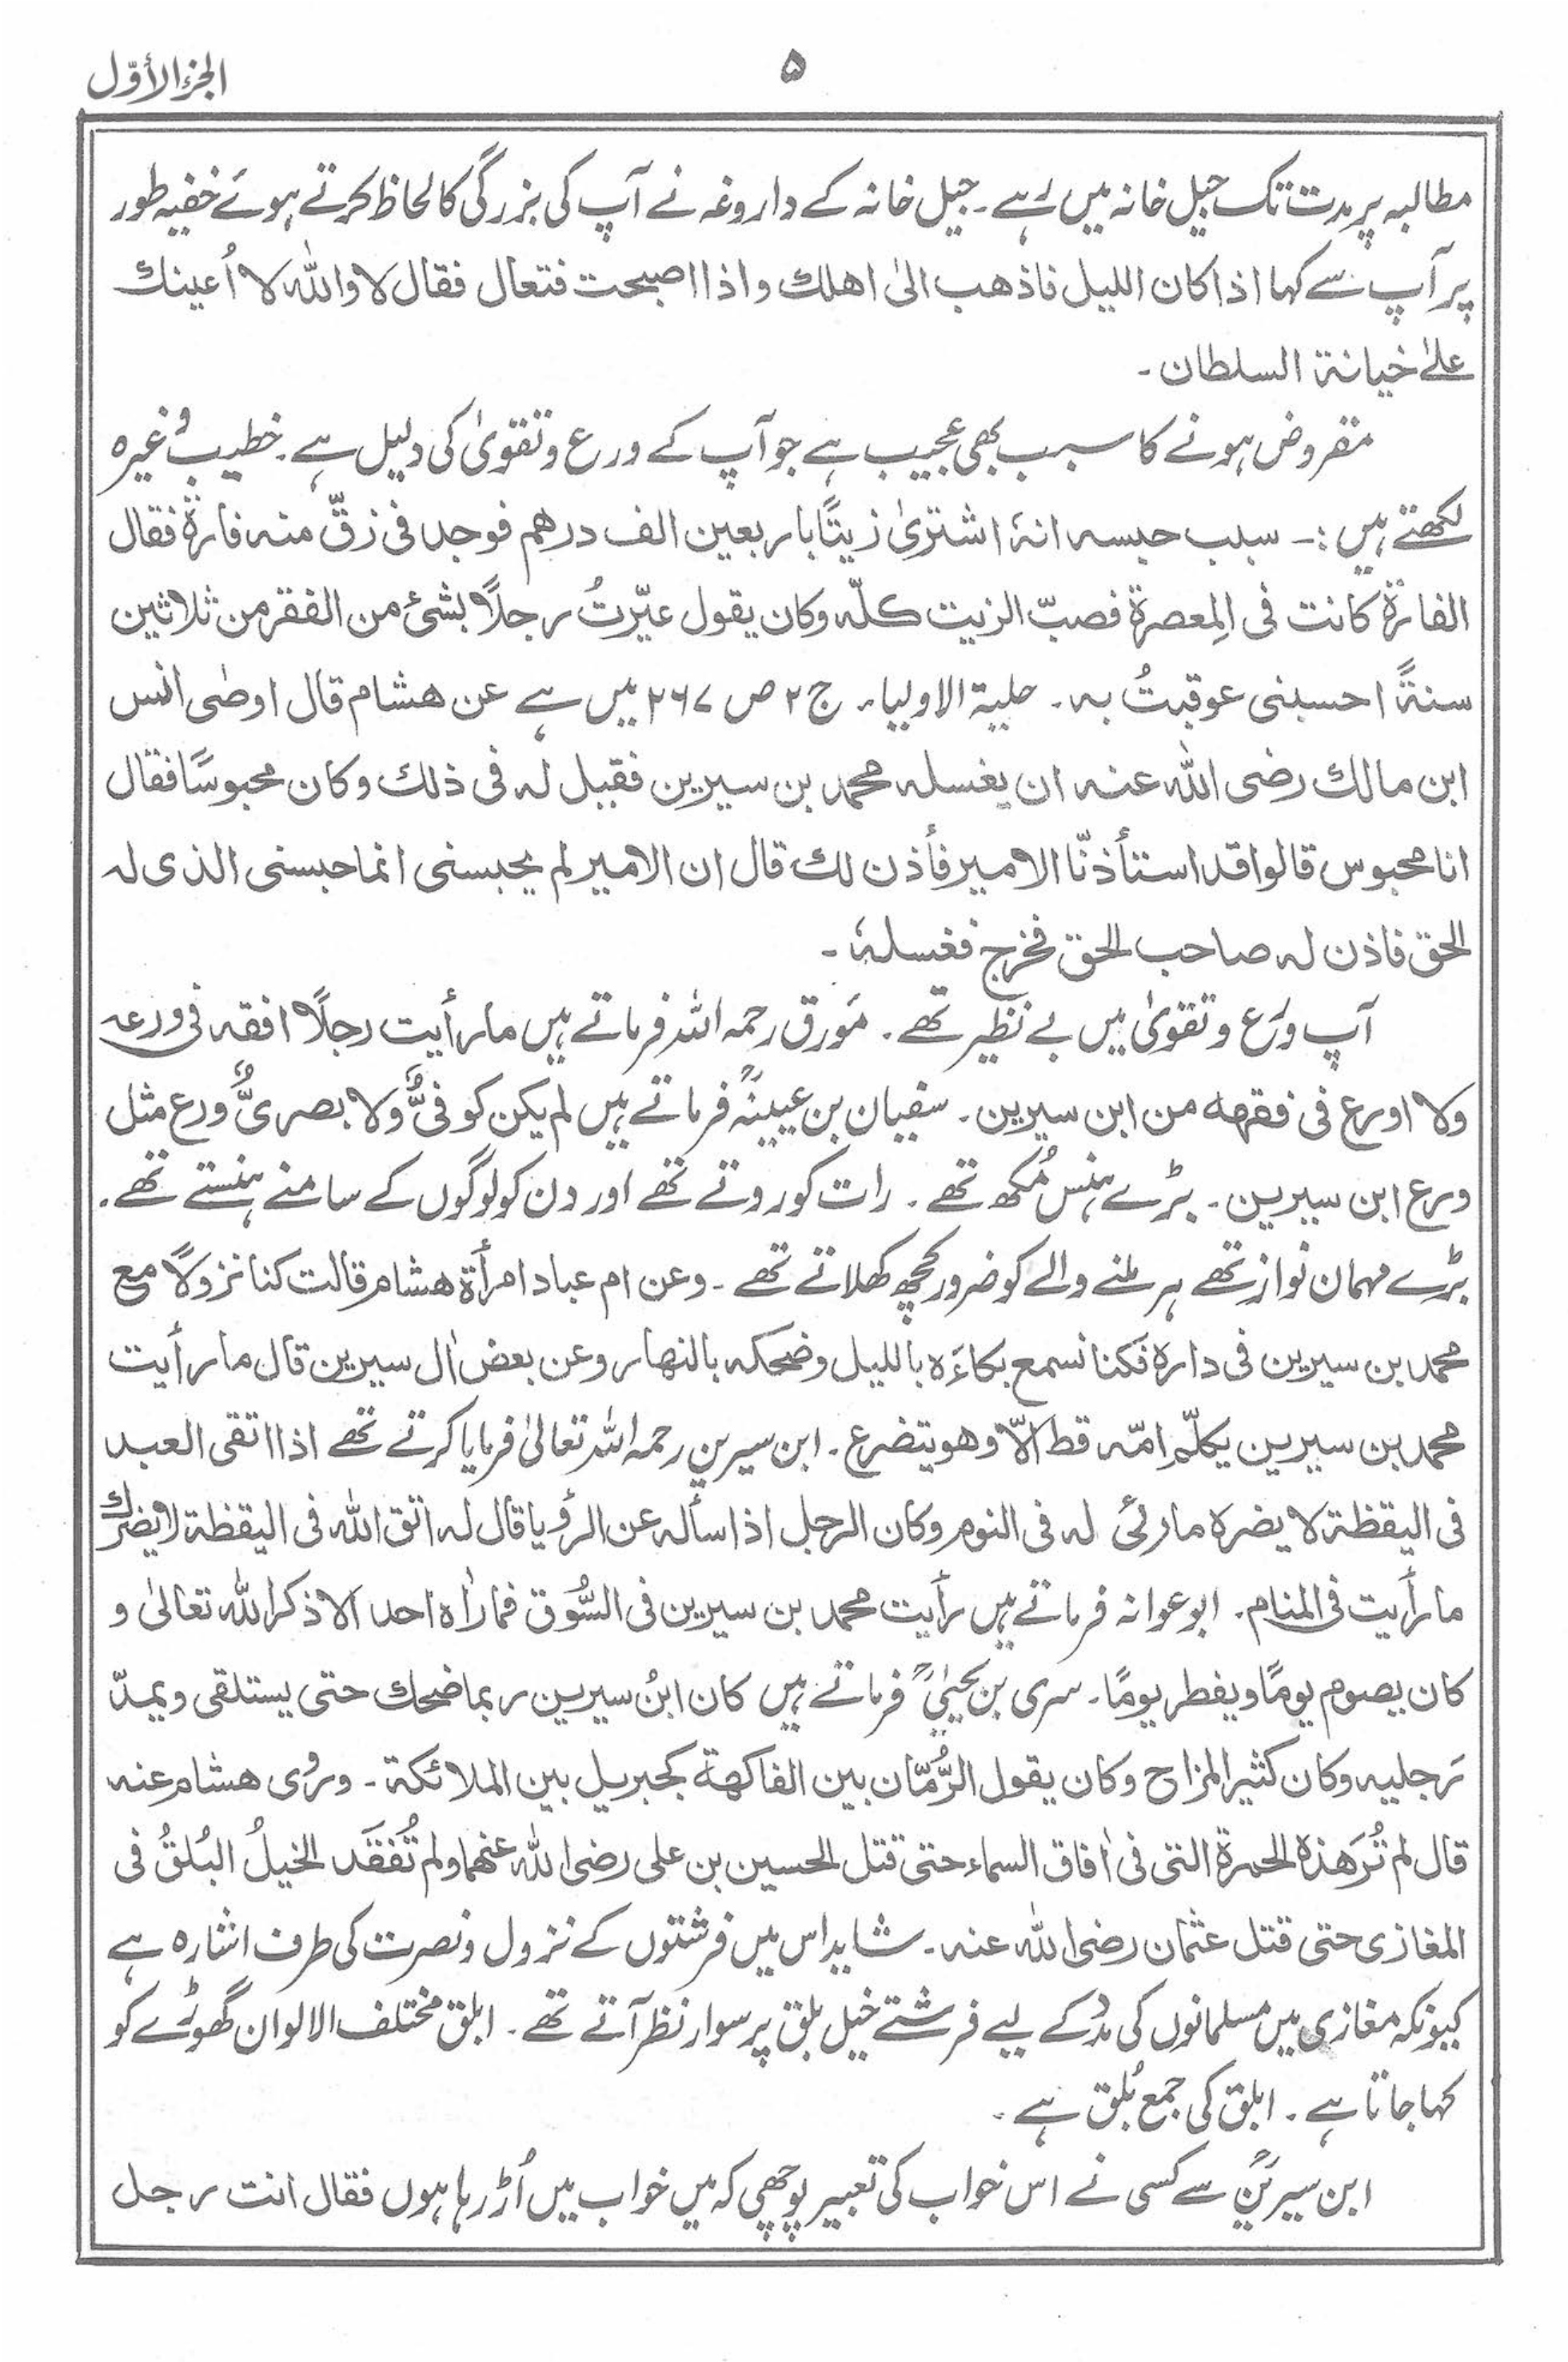 الجزء الأوّل
۵
مطالبہ پر مدت تک جیل خانہ میں رہے۔ جیل خانہ کے داروغہ نے آپ کی بزرگی کا لحاظ کرتے ہوئے خفیہ طور
پر آپ سے کہا اذا کان اللیل فاذھب الیٰ اھلك واذا اصبحت فتعال فقال لا واللہ لا اُعینك
علیٰ خیانۃ السلطان۔
مقروض ہونے کا سبب بھی عجیب ہے جو آپ کے ورع و تقویٰ کی دلیل ہے۔ خطیب وغیرہ
لکھتے ہیں :۔ سبب حبسہ انہٗ اشتریٰ زیتًا باربعین الف درھم فوجد فی زقّ منہ فارۃ فقال
الفارۃ کانت فی المِعصرۃ فصبّ الزیت کلّہ وکان یقول عیّرتُ رجلاً بشئ من الفقر من ثلاثین
سنۃً احسبنی عوقبتُ بہ۔ حلیۃ الاولیاء۔ ج ۲ ص ۲۶۷ میں ہے عن ھشام قال اوصٰی انس
ابن مالك رضی اللہ عنہ ان یغسلہ محمد بن سیرین فقیل لہ فی ذلك وکان محبوسًا فقال
انا محبوس قالوا قد استأذنّا الامیر فأذن لك قال ان الامیر لم یحبسنی انما حبسنی الذی لہ
الحق فاذن لہ صاحب الحق فخرج فغسلہٗ۔
آپ ورَع و تقویٰ میں بے نظیر تھے۔ مَورق رحمہ اللہ فرماتے ہیں ما رأیت رجلاً افقہ فی ورعہ
ولا اورع فی فقھہ من ابن سیرین۔ سفیان بن عیینہؒ فرماتے ہیں لم یکن کوفیٌّ ولا بصریٌّ ورع مثل
ورع ابن سیرین۔ بڑے ہنس مُکھ تھے۔ رات کو روتے تھے اور دن کو لوگوں کے سامنے ہنستے تھے۔
بڑے مہمان نواز تھے ہر ملنے والے کو ضرور کچھ کھلاتے تھے۔ وعن ام عباد امرأۃ ھشام قالت کنا نزولاً مع
محمد بن سیرین فی دارہ فکنا نسمع بکاءَہ باللیل وضحکہ بالنھار وعن بعض اٰل سیرین قال ما رأیت
محمد بن سیرین یکلّم امّہ قط الّا وھو یتضرع۔ ابن سیرین رحمہ اللہ تعالیٰ فرمایا کرتے تھے اذا اتقی العبد
فی الیقظۃ لا یضرہ ما رئی لہ فی النوم وکان الرجل اذا سألہ عن الرؤیا قال لہ اتق اللہ فی الیقظۃ لا یضرك
ما رأیت فی المنام۔ ابوعوانہ فرماتے ہیں رأیت محمد بن سیرین فی السُّوق فما راٰہ احد الا ذکر اللہ تعالیٰ و
کان یصوم یومًا ویفطر یومًا۔ سری بن یحییٰؒ فرماتے ہیں کان ابنُ سیرین ربما ضحك حتی یستلقی ویمدّ
رَجلیہ وکان کثیر المزاح وکان یقول الرُّمّان بین الفاکھۃ کجبریل بین الملائکۃ۔ ورُوی ھشام عنہ
قال لم تُرَ ھذہ الحمرۃ التی فی اٰفاق السماء حتی قتل الحسین بن علی رضی اللہ عنھما ولم تُفقَد الخیلُ البُلقُ فی
المغازی حتی قتل عثمان رضی اللہ عنہ۔ شاید اس میں فرشتوں کے نزول و نصرت کی طرف اشارہ ہے
کیونکہ مغازی میں مسلمانوں کی مدد کے لیے فرشتے خیل بلق پر سوار نظر آتے تھے۔ ابلق مختلف الالوان گھوڑے کو
کہا جاتا ہے۔ ابلق کی جمع بُلق ہے۔
ابن سیرینؒ سے کسی نے اس خواب کی تعبیر پوچھی کہ میں خواب میں اُڑ رہا ہوں فقال انت رجل